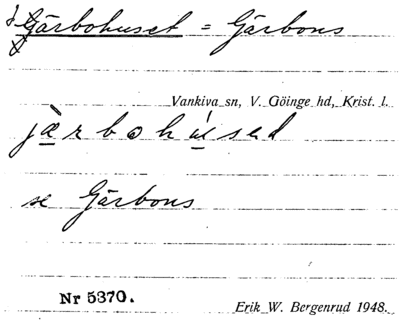 Gärbohuset = Gärbons
Vankiva sn, V. Göinge hd, Krist. l.
järbohúsed
se Gärbons
Nr 5370.
Erik W. Bergenrud 1948.